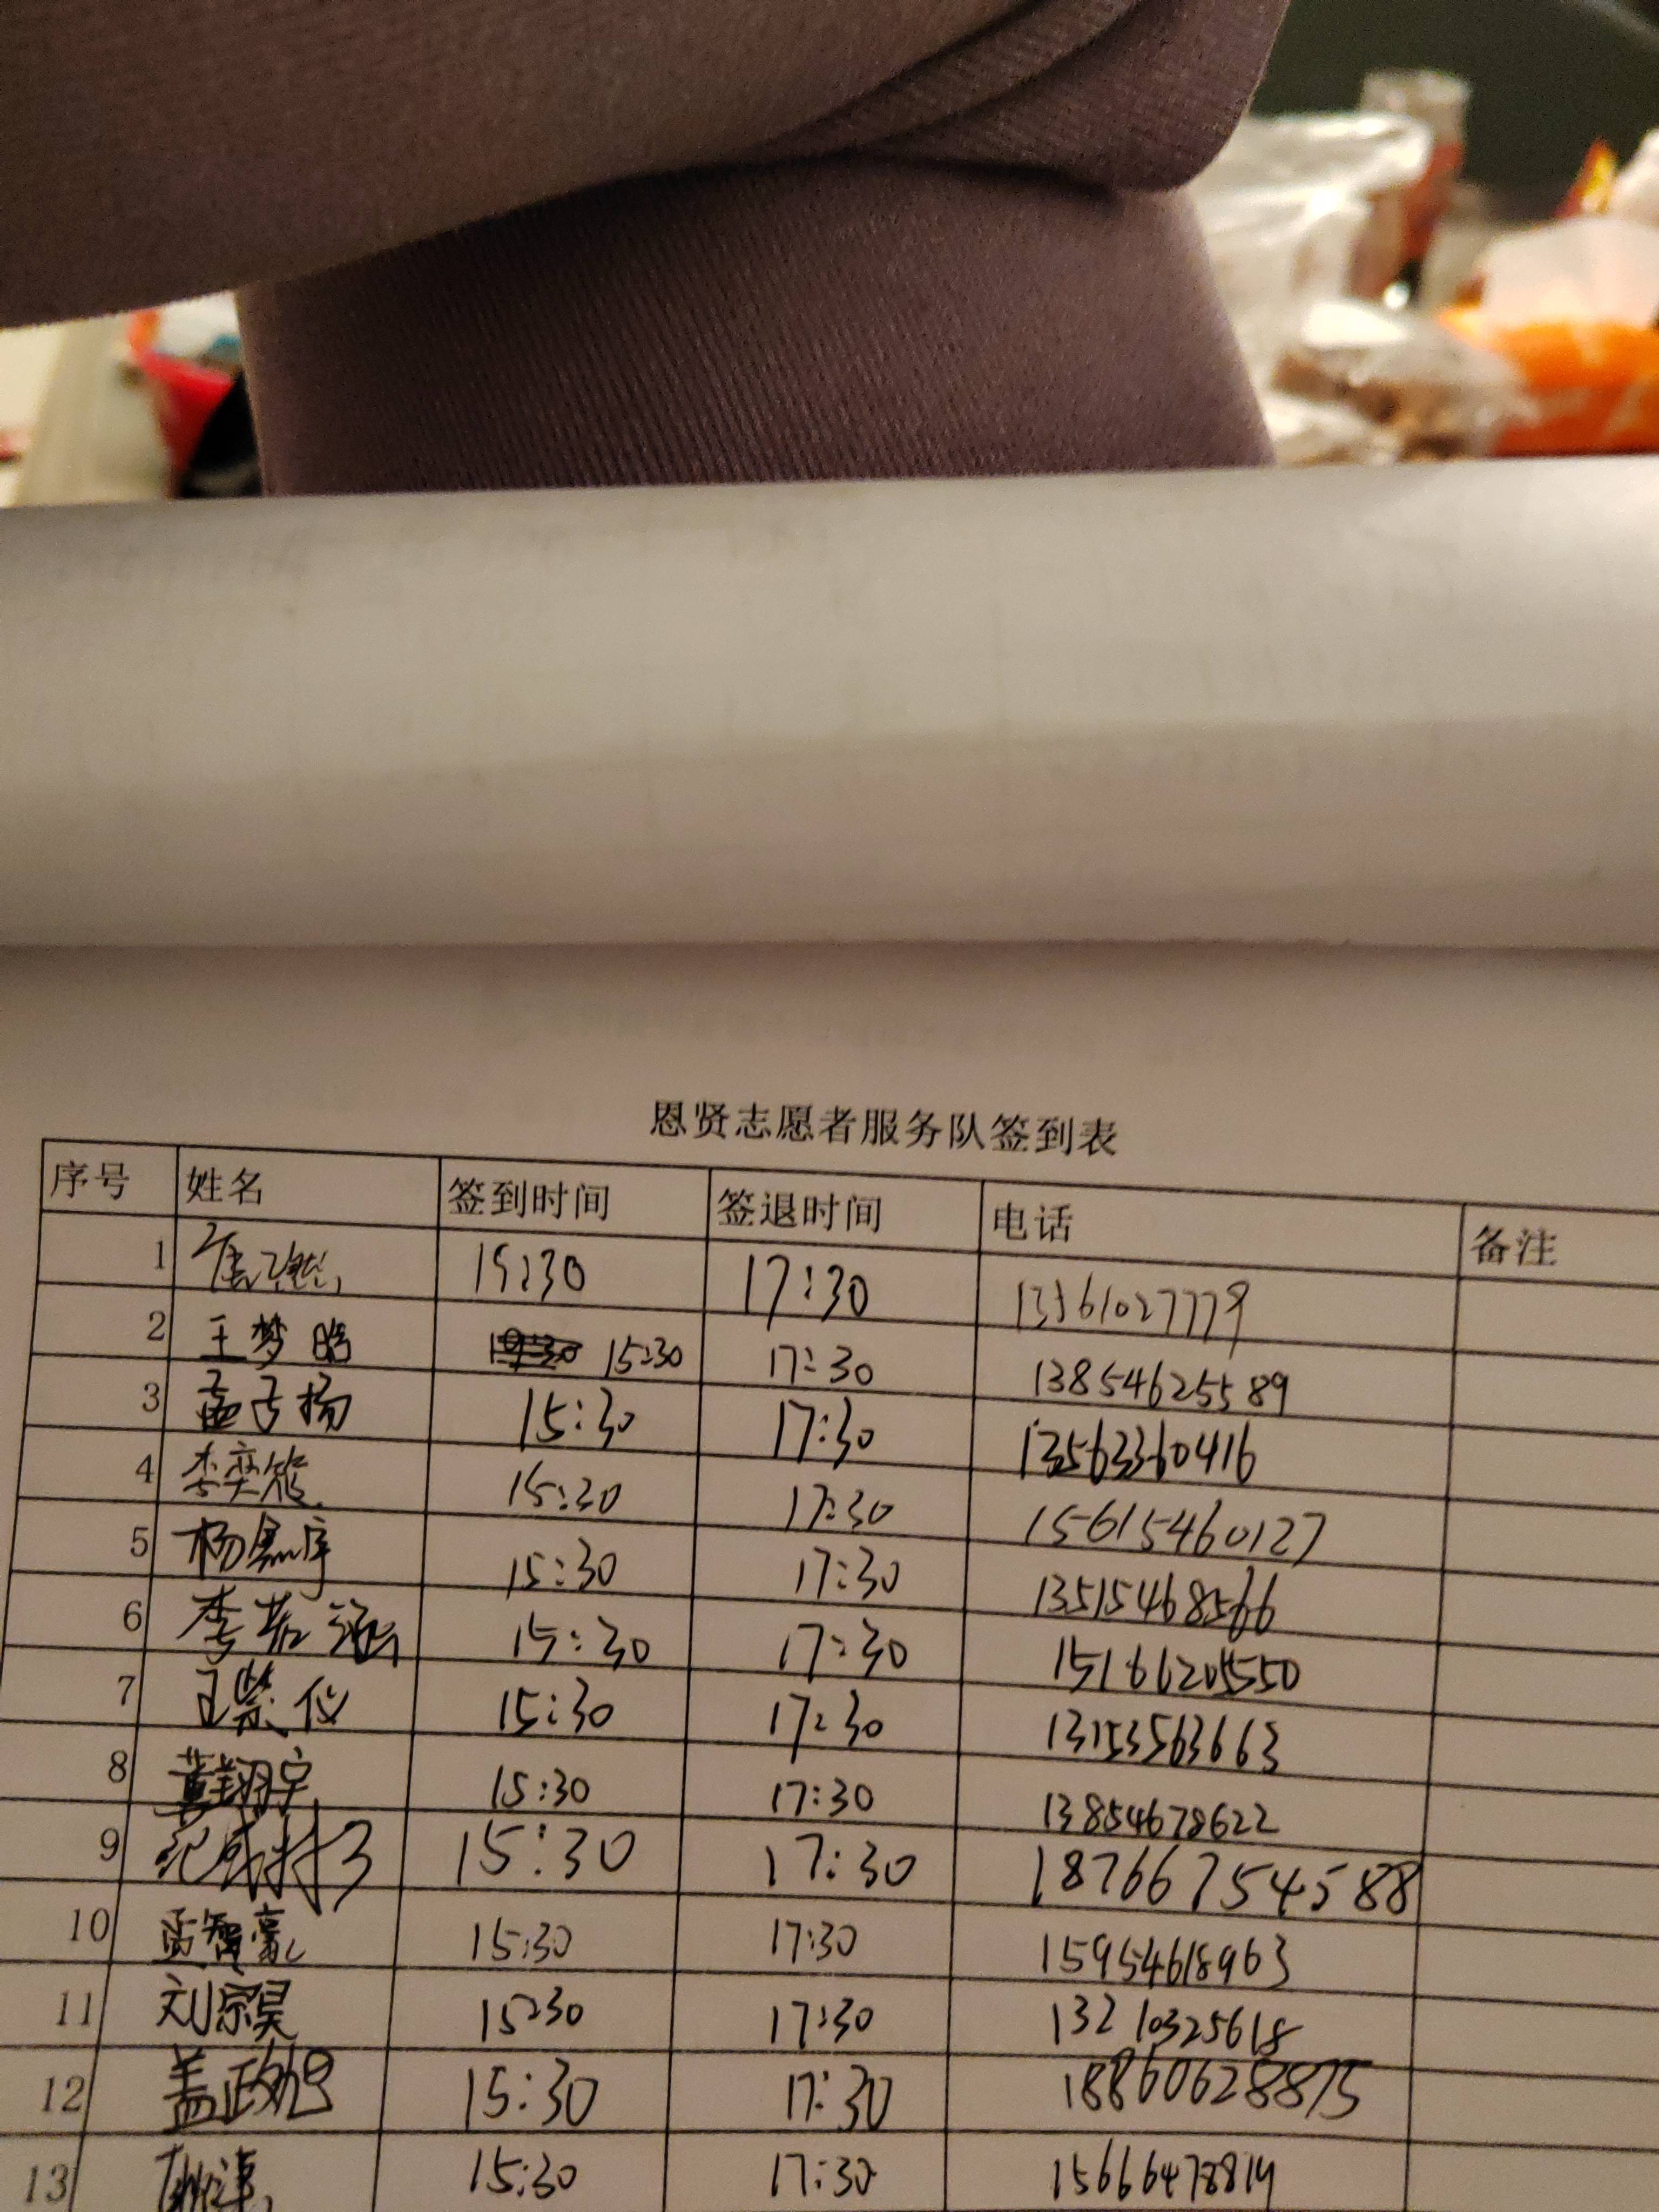 恩贤志愿者服务队签到表
序号 姓名 签到时间 签退时间 电话 备注
1 15:30 17:30 13361027779
2 王梦晗 15:30 17:30 13854625589
3 孟子扬 15:30 17:30 13563360416
4 李奕筱 15:30 17:30 15615460127
5 杨景宇 15:30 17:30 13515468566
6 李若涵 15:30 17:30
7 王紫仪 15:30 17:30 13153563663
8 黄翔宇 15:30 17:30 13854678622
9 15:30 17:30 18766754588
10 孟智豪 15:30 17:30 15954618963
11 刘宗昊 15:30 17:30 13210325618
12 盖政旭 15:30 17:30 18860628875
13 15:30 17:30 15666478819